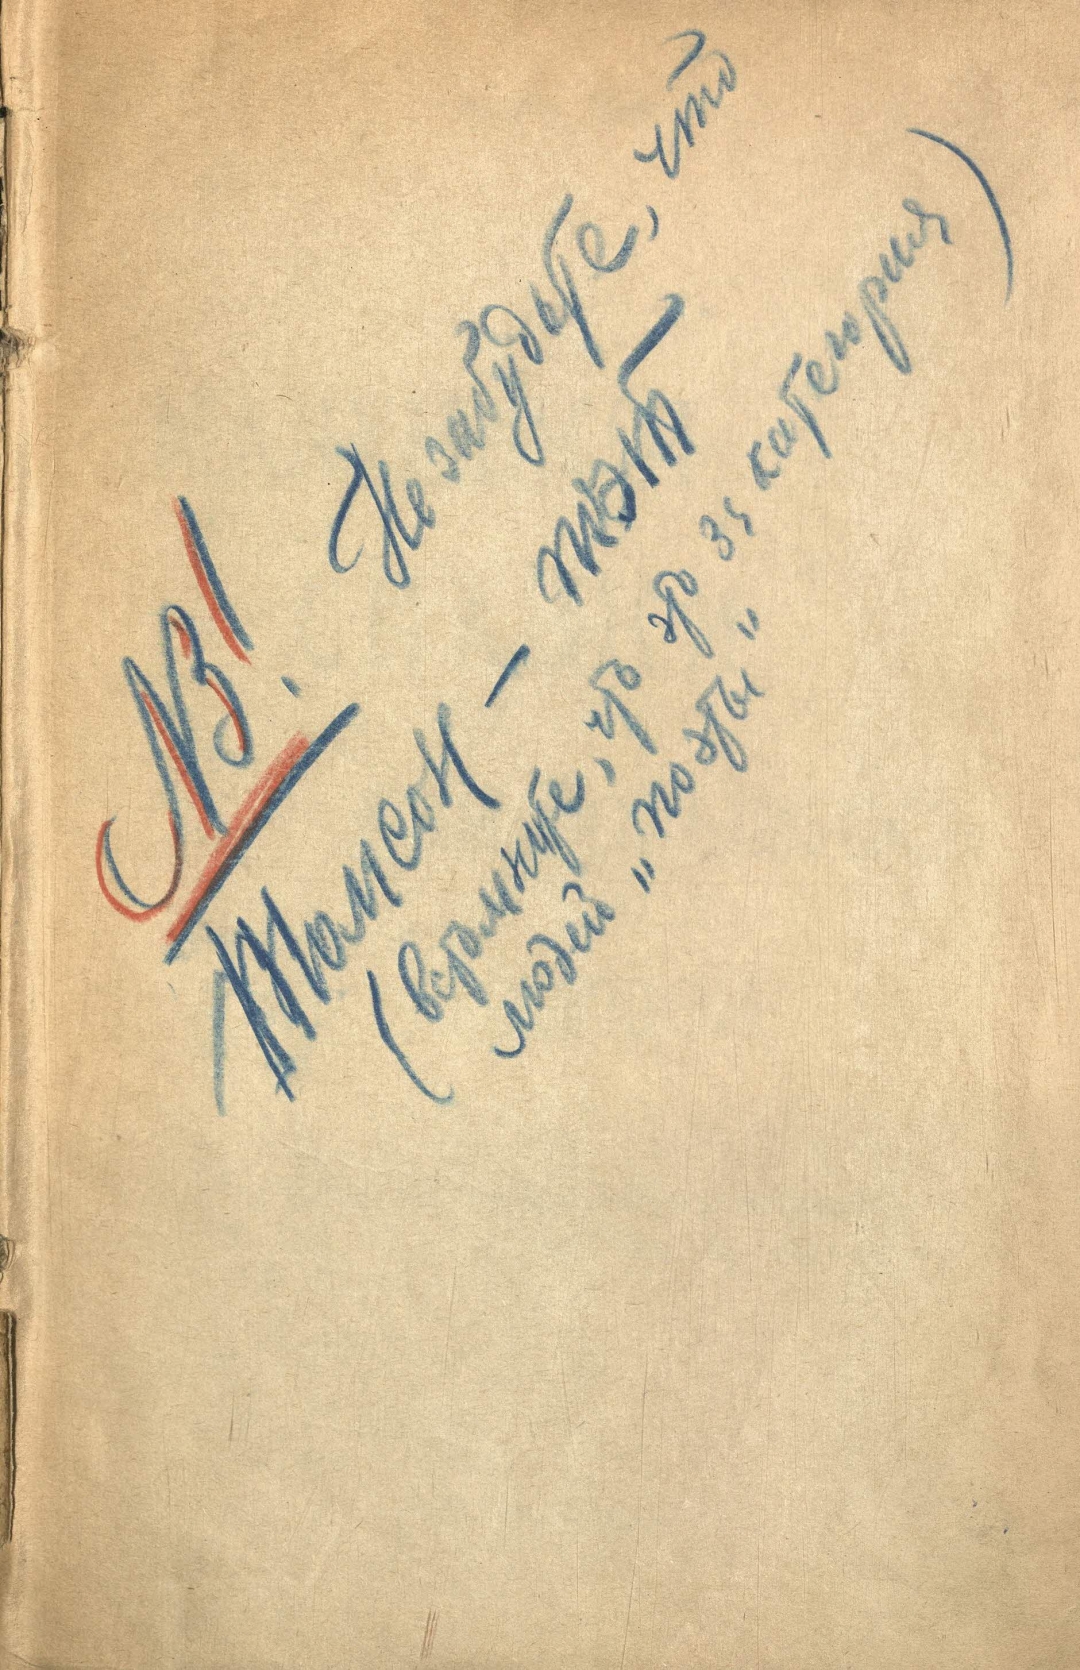 NB! Не забудьте, что
Томсон – поэт
(вспомните, что это 3я категория
людей „поэты“)